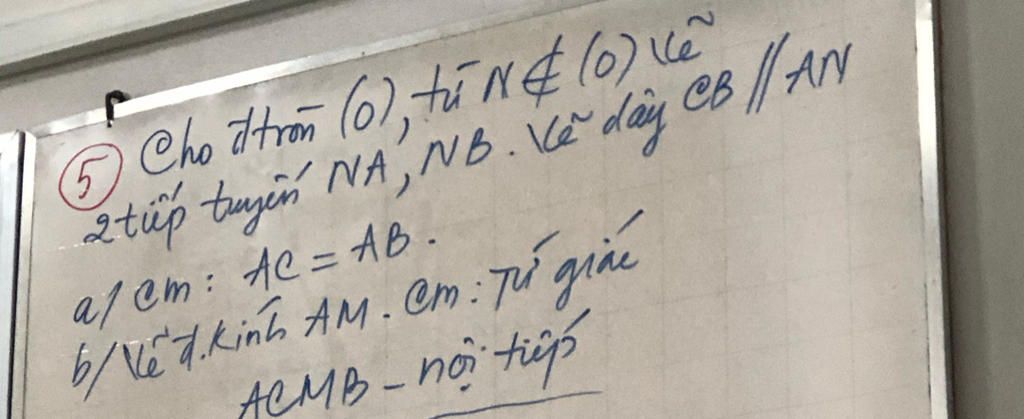 ⑤ Cho đtròn (O), từ N ∉ (O) vẽ
2 tiếp tuyến NA, NB. Vẽ dây CB // AN
a/ Cm: AC = AB.
b/ Vẽ đ.kính AM. Cm: Tứ giác
ACMB – nội tiếp